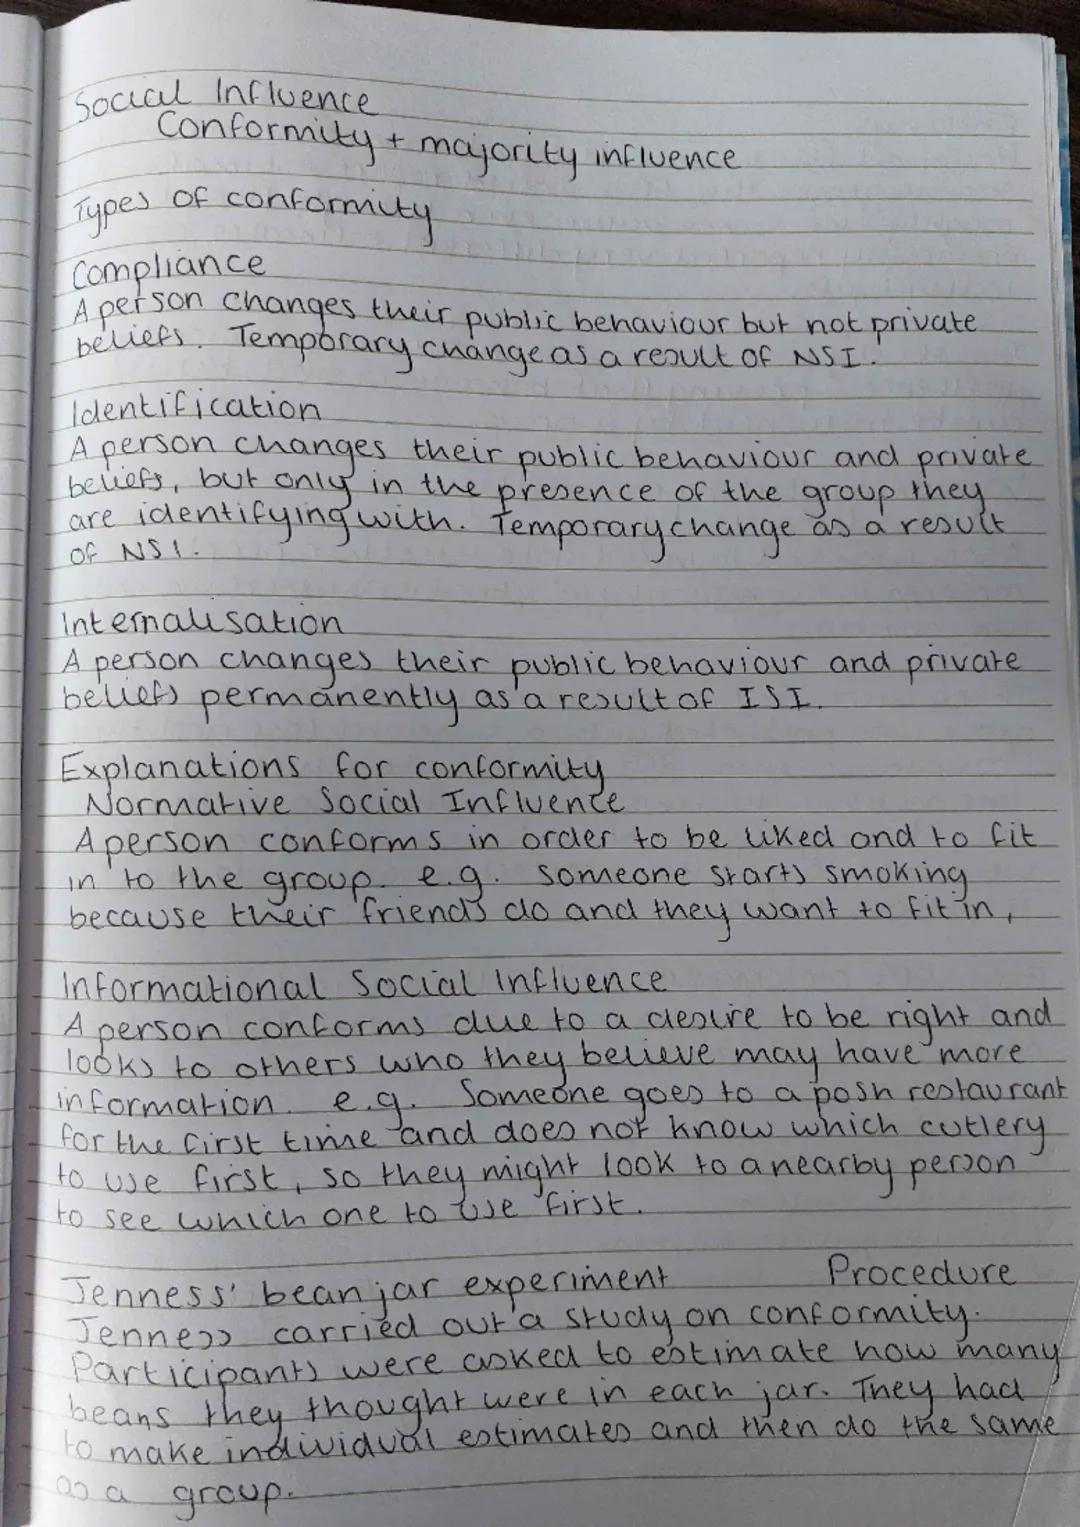 Social Influence
Conformity + majority influence
Types of conformity
Compliance
A person changes their public behaviour but not private
beliefs. Temporary change as a result of NSI.
Identification
A person changes their public behaviour and private
beliefs, but only in the presence of the group they
are identifying with. Temporary change as a result
of NSI.
Internalisation
A person changes their public behaviour and private
beliefs permanently as a result of ISI.
Explanations for conformity
Normative Social Influence
A person conforms in order to be liked and to fit
in to the group. e.g. someone starts smoking
because their friends do and they want to fit in,
Informational Social Influence
A person conforms due to a desire to be right and
looks to others who they believe may have more
information. e.g. Someone goes to a posh restaurant
for the first time and does not know which cutlery
to use first, so they might look to a nearby person
to see which one to use first.
Jenness' bean jar experiment Procedure
Jenness carried out a study on conformity.
Participants were asked to estimate how many
beans they thought were in each jar. They had
to make individual estimates and then do the same
as a group.